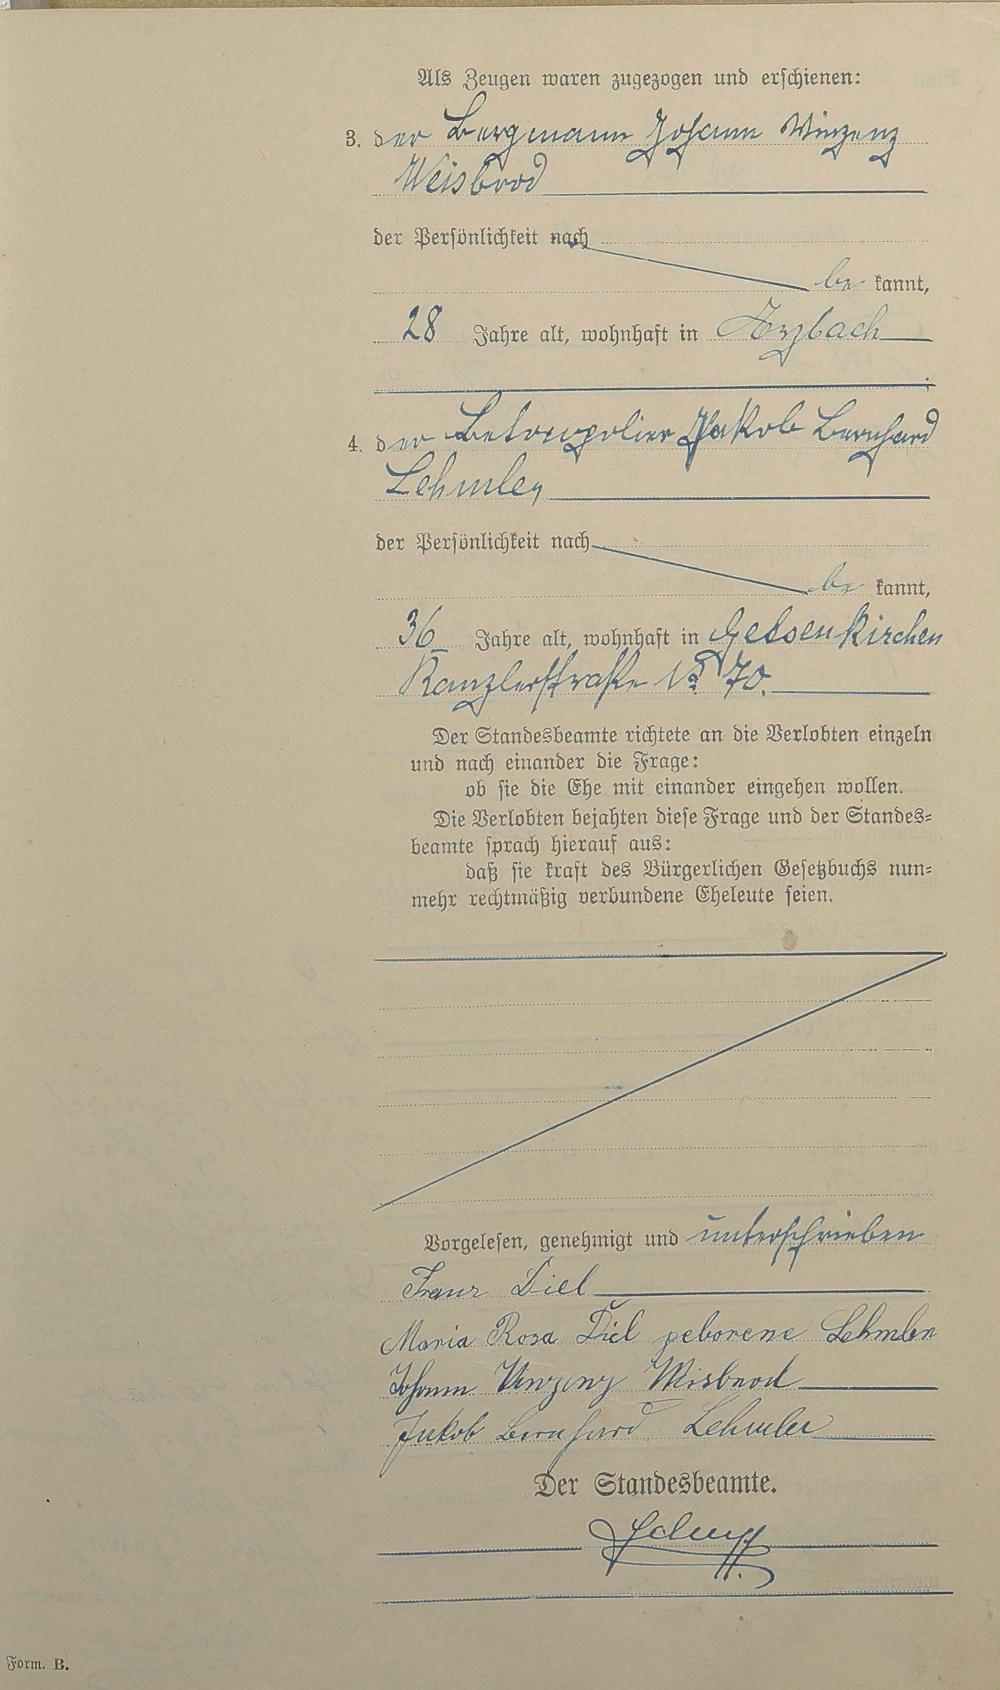 Als Zeugen waren zugezogen und erschienen:
3. der Bergmann Johann Vinzenz
Weisbrod
der Persönlichkeit nach
be kannt,
28 Jahre alt, wohnhaft in Arzbach
;
4. der Betonpolier Jakob Bernhard
Lehmler
der Persönlichkeit nach
be kannt,
36 Jahre alt, wohnhaft in Gelsenkirchen
Kanzlerstraße No 70.
Der Standesbeamte richtete an die Verlobten einzeln
und nach einander die Frage:
ob sie die Ehe mit einander eingehen wollen.
Die Verlobten bejahten diese Frage und der Standes=
beamte sprach hierauf aus:
daß sie kraft des Bürgerlichen Gesetzbuchs nun=
mehr rechtmäßig verbundene Eheleute seien.
Vorgelesen, genehmigt und unterschrieben
Franz Diel
Maria Rosa Diel geborene Lehmler
Johann Vinzenz Weisbrod
Jakob Bernhard Lehmler
Der Standesbeamte.
Form. B.